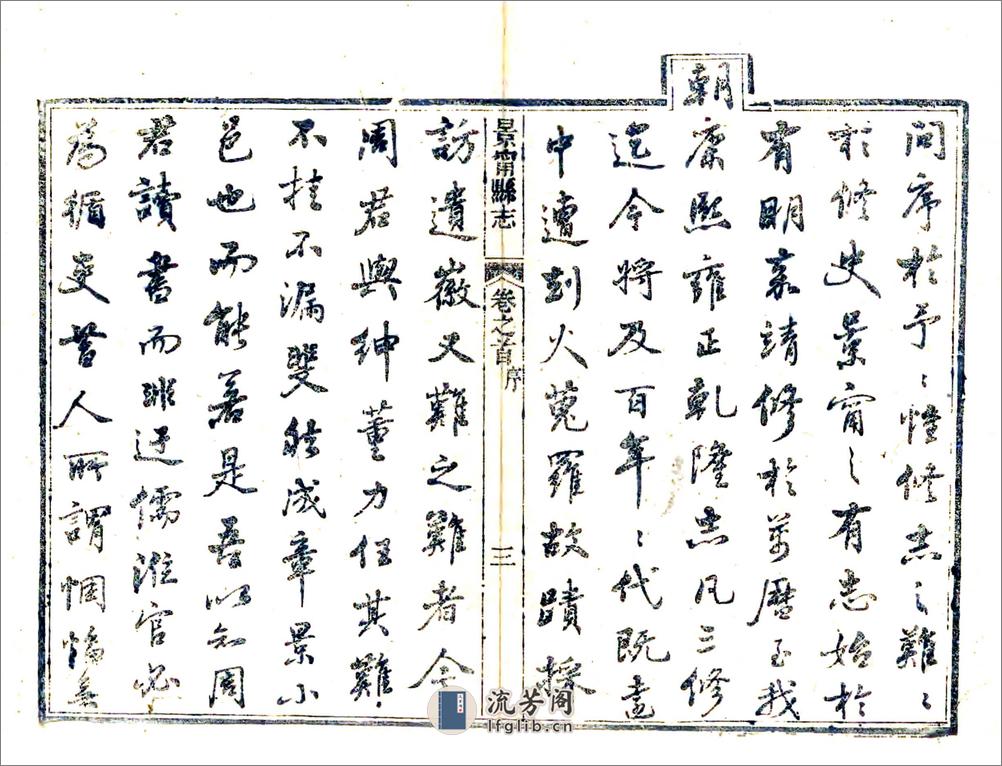 問序於予〻惟修志之難〻
於修史景甯之有志始於
有明嘉靖修於萬歷至我
朝康熙雍正乾隆志凡三修
迄今將及百年〻代既遠
中遭劫火蒐羅故蹟採
景甯縣志 卷之首 序 三
訪遺徽又難之難者今
周君與紳董力任其難
不挂不漏斐然成章景小
邑也而能若是吾以知周
君讀書而非迂儒涖官必
為循吏昔人所謂悃愊無
流芳阁
lfglib.cn